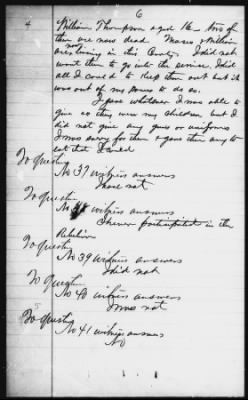 6
4 William Thompson aged 16 – two of
them are now dead. Marco & William
are not living in this County. I did not
want them to go into the service. I did
all I could to keep them out but it
was out of my power to do so.
I gave whatever I was able to
give as they were my children but I
did not give any guns or uniforms
I was sorry for them & gave them any to
eat that I could
To question
No 37 witness answers
I have not
To question
No 38 witness answers
I never participated in the
Rebellion
To question
No 39 witness answers
I did not
To question
No 40 witness answers
I was not
5
To question
No 41 witness answers
No